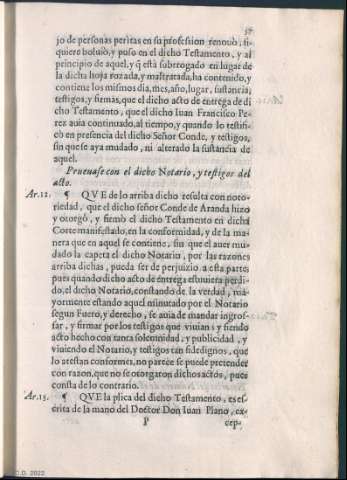 57
jo de personas peritas en su profession renouò, si-
quiere boluiò, y puso en el dicho Testamento, y al
principio de aquel, y q̃ està subrogado en lugar de
la dicha hoja rozada, y maltratada, ha contenido, y
contiene los mismos dia, mes, año, lugar, sustancia,
testigos, y firmas, que el dicho acto de entrega de di
cho Testamento, que el dicho Iuan Francisco Pe-
rez auia continuado, al tiempo, y quando lo testifi-
cò en presencia del dicho Señor Conde, y testigos,
sin que se aya mudado, ni alterado la sustancia de
aquel.
Prueuase con el dicho Notario, y testigos del
acto.
Ar.12. ¶ QVE de lo arriba dicho resulta con noto-
riedad, que el dicho señor Conde de Aranda hizo
y otorgò, y firmò el dicho Testamento en dicha
Corte manifestado, en la conformidad, y de la ma-
nera que en aquel se contiene, sin que el auer mu-
dado la capeta el dicho Notario, por las razones
arriba dichas, pueda ser de perjuizio a esta parte;
pues quando dicho acto de entrega estuuiera perdi-
do, el dicho Notario, constando de la verdad, ma-
yormente estando aquel minutado por el Notario
segun Fuero, y derecho, se auia de mandar ingros-
sar, y firmar por los testigos que viuian: y siendo
acto hecho con tanta solemnidad, y publicidad, y
viuiendo el Notario, y testigos tan fidedignos, que
lo atestan conformes, no parece se puede pretender
con razon, que no se otorgaron dichos actos, pues
consta de lo contrario.
Ar.13. ¶ QVE la plica del dicho Testamento, es es-
crita de la mano del Doctor Don Iuan Plano, ex-
P cep-
D.D. 2022